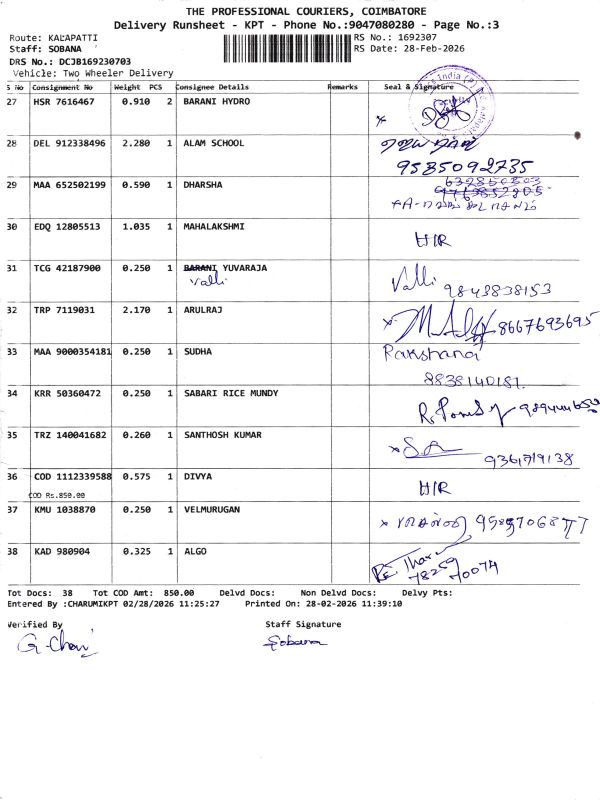 THE PROFESSIONAL COURIERS, COIMBATORE
Delivery Runsheet - KPT - Phone No.:9047080280 - Page No.:3
Route: KALAPATTI
RS No.: 1692307
Staff: SOBANA
RS Date: 28-Feb-2026
DRS No.: DCJB169230703
Vehicle: Two Wheeler Delivery
S No Consignment No Weight PCS Consignee Details Remarks Seal & Signature
27 HSR 7616467 0.910 2 BARANI HYDRO
28 DEL 912338496 2.280 1 ALAM SCHOOL
9585092735
29 MAA 652502199 0.590 1 DHARSHA
30 EDQ 12805513 1.035 1 MAHALAKSHMI H/R
31 TCG 42187900 0.250 1 BARANI YUVARAJA Valli
Valli 9843838153
32 TRP 7119031 2.170 1 ARULRAJ
8667693695
33 MAA 9000354181 0.250 1 SUDHA Rakshana
8838140181.
34 KRR 50360472 0.250 1 SABARI RICE MUNDY
35 TRZ 140041682 0.260 1 SANTHOSH KUMAR
9361719138
36 COD 1112339588 0.575 1 DIVYA H/R
COD Rs.850.00
37 KMU 1038870 0.250 1 VELMURUGAN
38 KAD 980904 0.325 1 ALGO
78259
70074
Tot Docs: 38 Tot COD Amt: 850.00 Delvd Docs: Non Delvd Docs: Delvy Pts:
Entered By :CHARUMIKPT 02/28/2026 11:25:27 Printed On: 28-02-2026 11:39:10
Verified By Staff Signature
Sobana